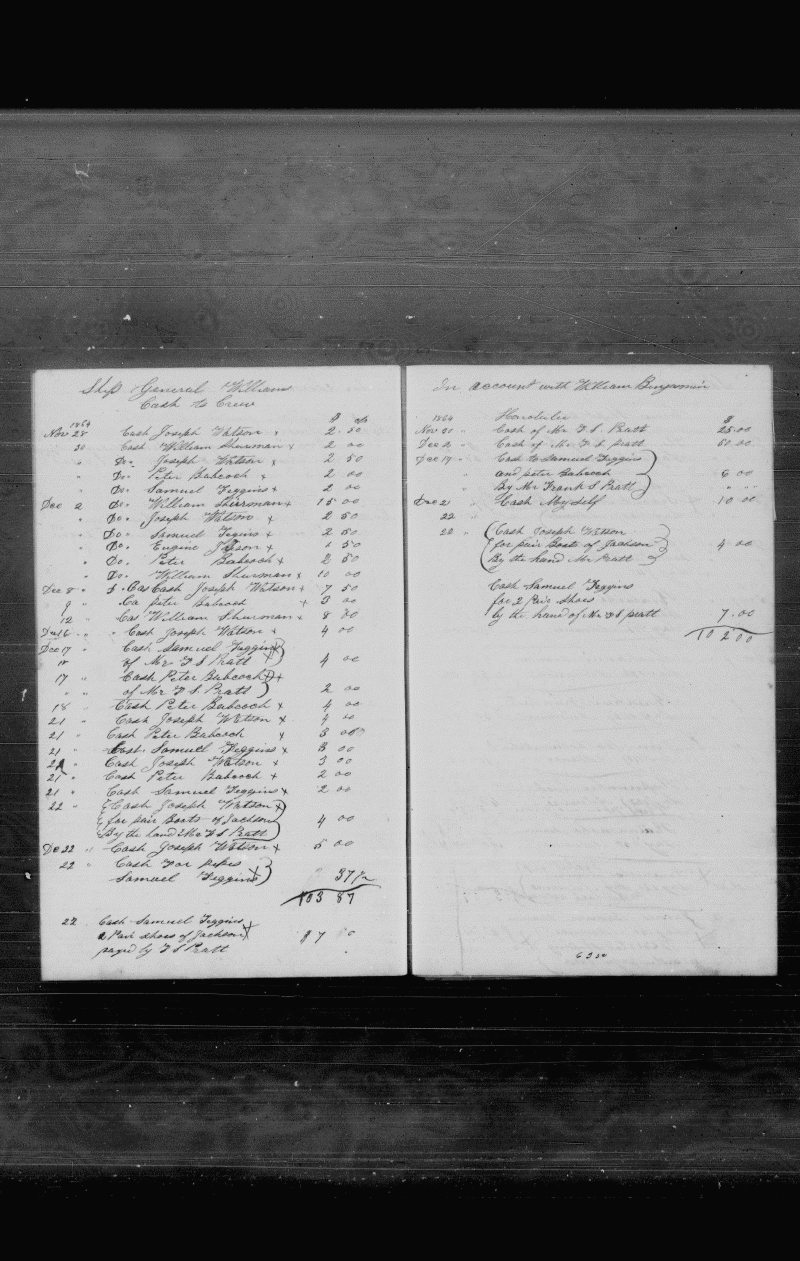 Ship General Williams
Cash to Crew
$ cts
1864
Nov 28 Cash Joseph Watson x 2 50
30 Cash William Shurman x 2 00
" Do. Joseph Watson x 2 50
" Do. Peter Babcock x 2 00
" Do. Samuel Figgins x 2 00
Dec 2 Do. William Sherman x 15 00
" Do. Joseph Watson x 2 50
" Do. Samuel Figins x 2 50
" Do. Engine x 1 50
" Do. Peter Babcock x 2 50
" Do. William Shurman x 10 00
Dec 8 " Cash Joseph Watson x 7 50
9 " Ca peter Babcock x 3 00
12 Cas William Shurman x 8 00
Dec 16 " " Cash Joseph Watson x 4 00
Dec 17 " Cash Samuel Figgins x
of Mr F S Pratt 4 00
17 " Cash Peter Babcock x
" " of Mr F S Pratt 2 00
18 " Cash Peter Babcock x 4 00
21 " Cash Joseph Watson x 4 00
21 " Cash Peter Babcock x 3 00
21 " Cash Samuel Figgins x 3 00
21 " Cash Joseph Watson x 3 00
21 " Cash Peter Babcock x 2 00
21 " Cash Samuel Figgins x 2 00
22 " Cash Joseph Watson x
for pair Boots of Jackson
By the hand Mr F S Pratt 4 00
Dec 22 " Cash Joseph Watson x 5 00
22 " Cash For pipes
Samuel Figgins x 37½
103 87
22 Cash Samuel Figgins
2 Pair shoes of Jackson x 7
payed by F S Pratt
In account with William Benjamin
1864 Honolulu $
Nov 30 " Cash of Mr F S Pratt 25.00
Dec 2 " Cash of Mr F S pratt 50.00
Dec 17 " Cash to Samuel Figgins
and peter Babcock 6 00
By Mr Frank S Pratt " "
Dec 21 " Cash My self 10 00
22 "
22 " Cash Joseph Watson
for pair Boots of Jackson 4 00
By the hand Mr Pratt
Cash Samuel Figgins
for 2 Pair Shoes
by the hand of Mr F S pratt 7.00
10 2 00